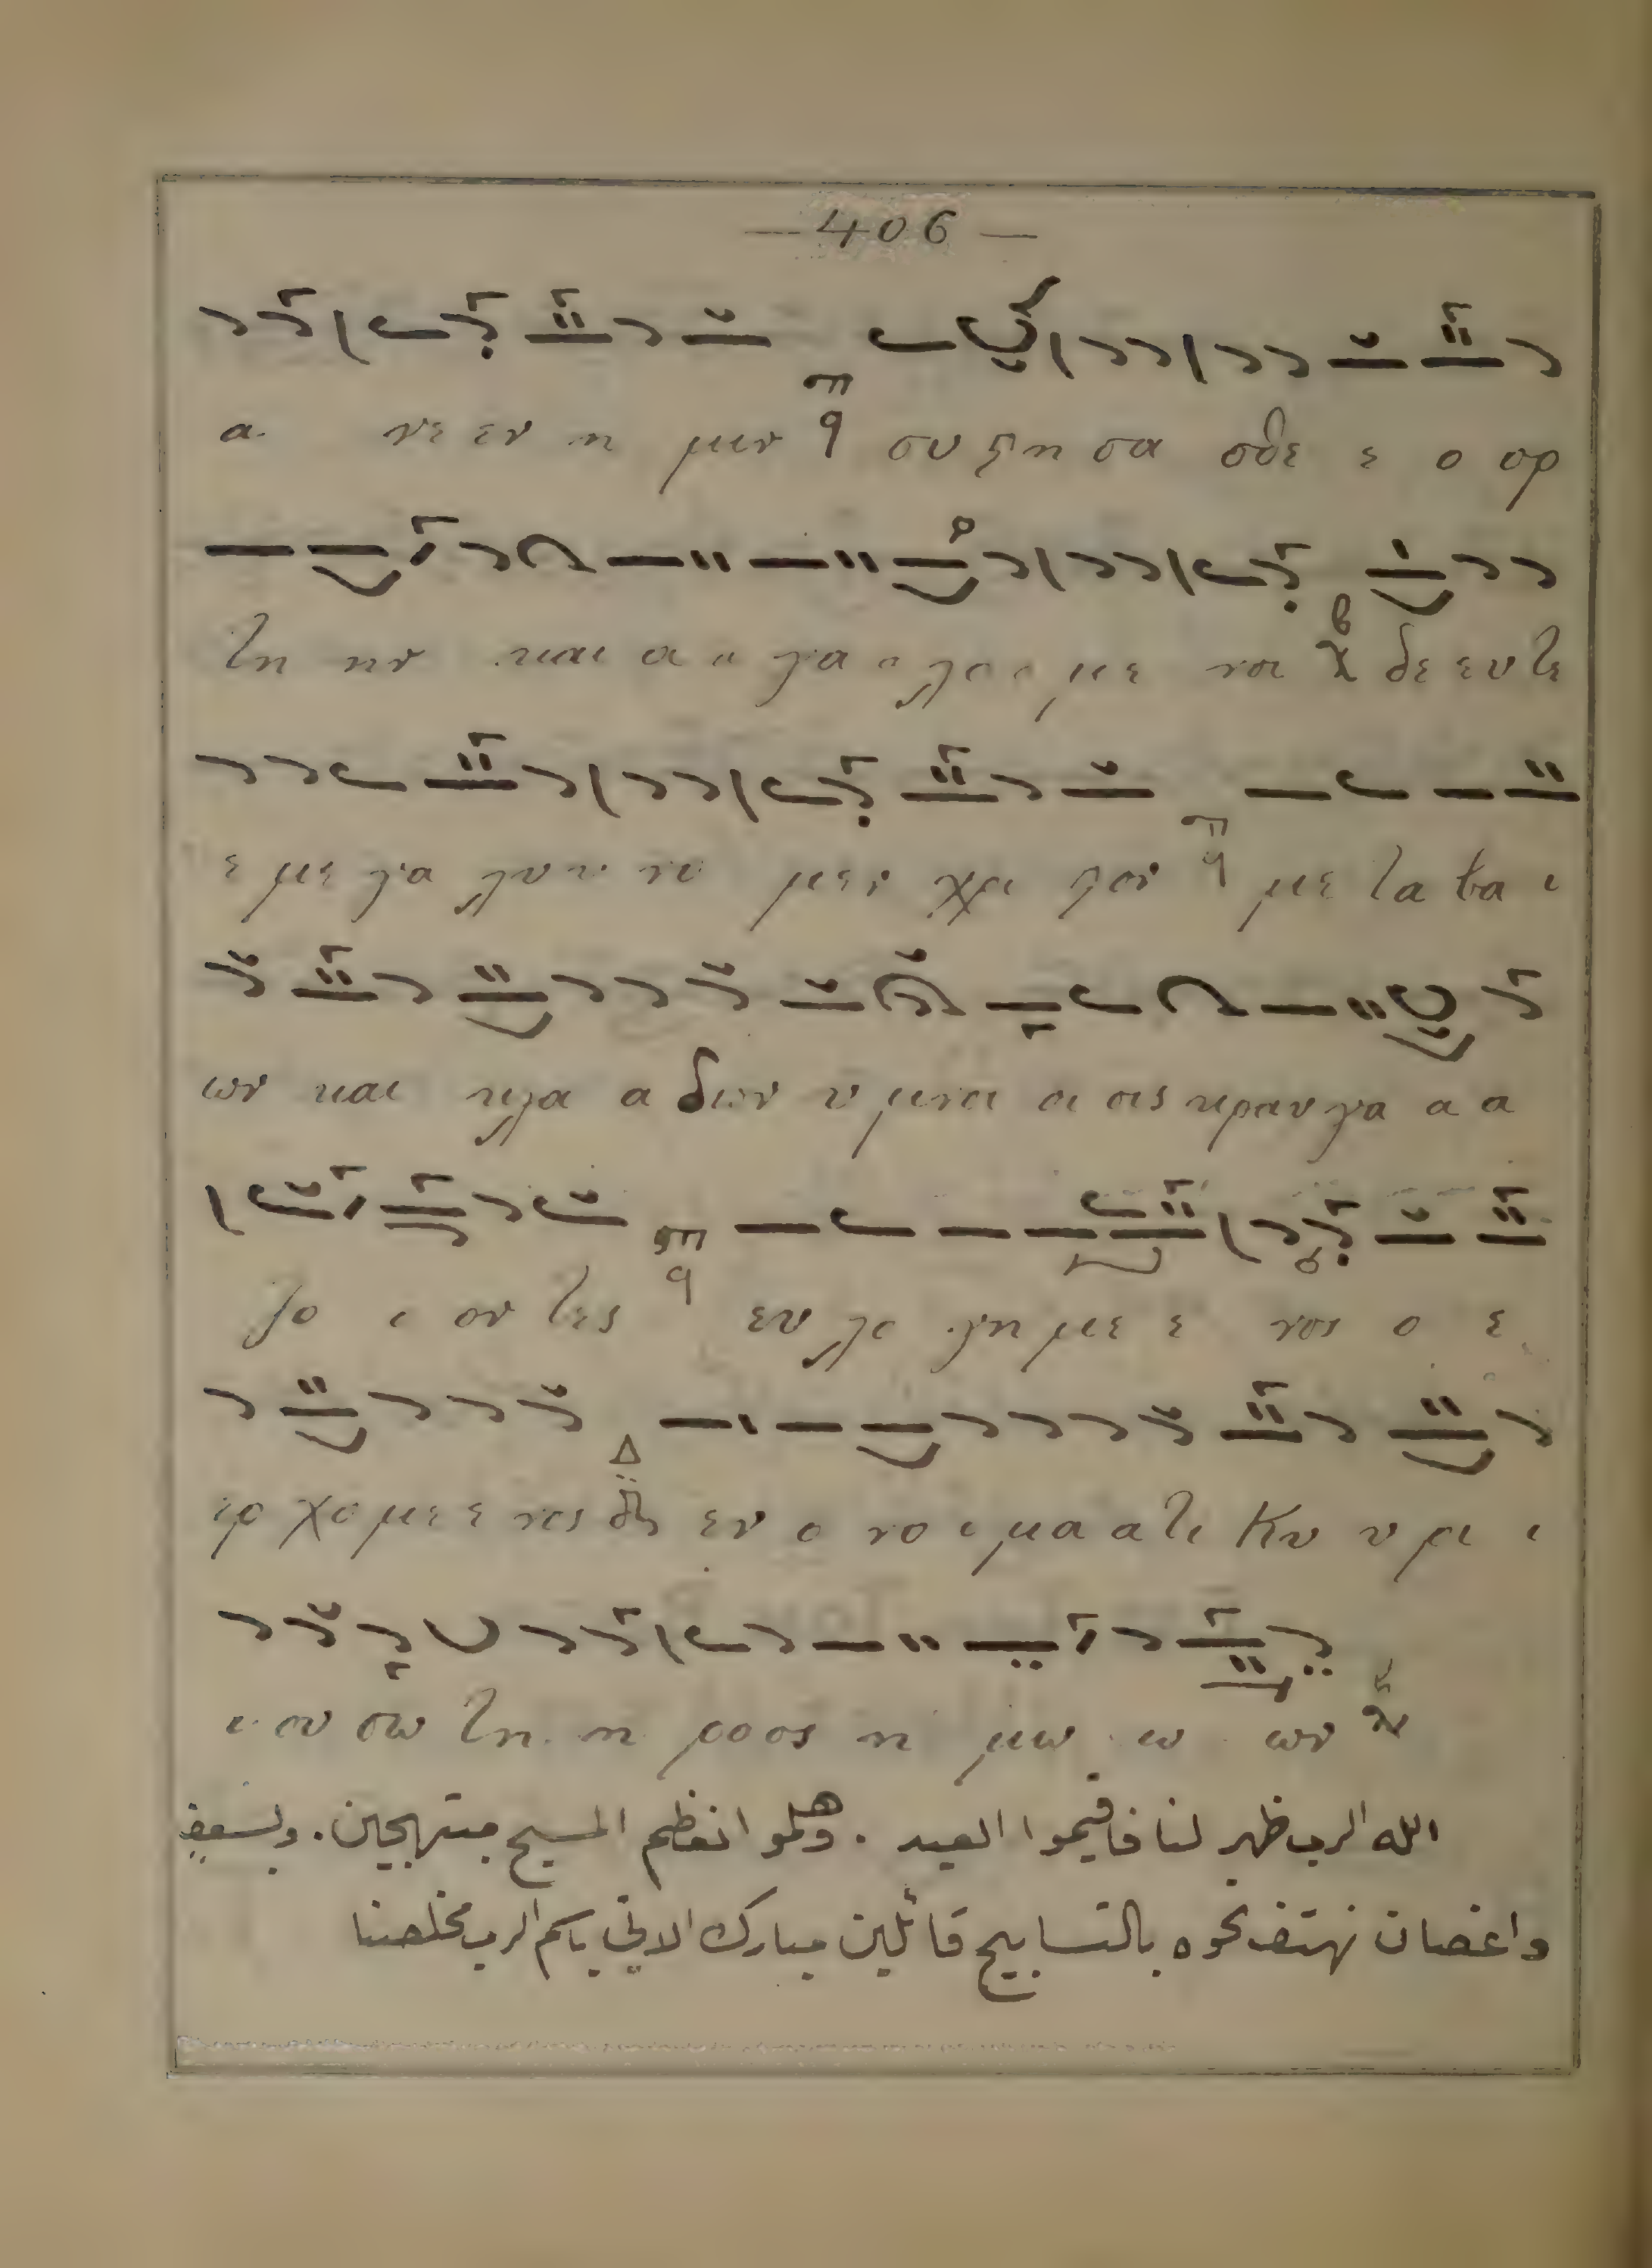 — 406 —
α νε εν η μιν συ στη σα σθε ε ο ορ
τη ην και α α γα α λο ο με νοι δε ευ τε
ε με γα λυ υ νω μεν χρι στον με τα βα ι
ων και κλα α δων υ μνοι οι οις κραυ γα α α
ζο ο ον τες ευ λο γη με ε νος ο ε
ερ χο με ε νος εν ο νο ο μα α τι Κυ υ ρι ι
ι ου σω τη η ρο ος η μω ω ων
الله الرب ظهر لنا فاقيموا العيد . وهلموا نعظم المسيح مبتهجين . وبسعف
واغصان نهتف نحوه بالتسابيح قائلين مبارك الاتي باسم الرب مخلصنا